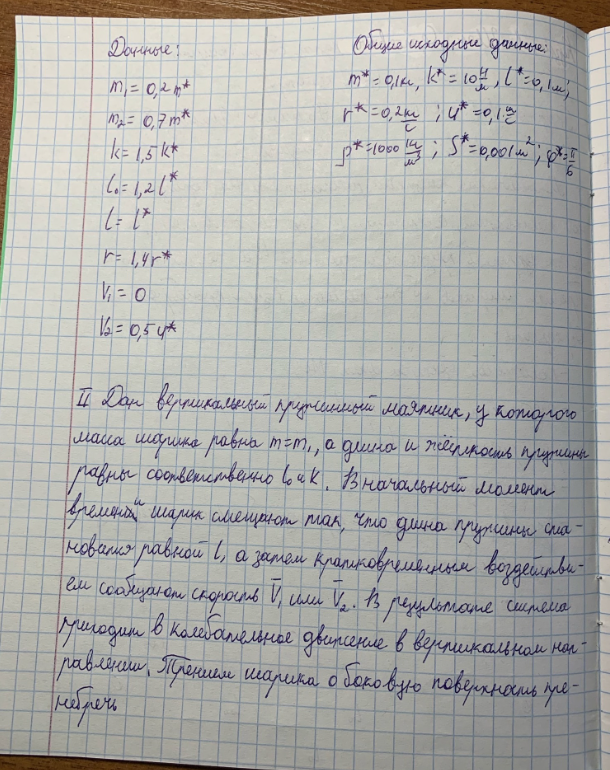 Данные:
m₁ = 0,2 m*
m₂ = 0,7 m*
k = 1,5 k*
l₀ = 1,2 l*
l = l*
r = 1,4 r*
V₁ = 0
V₂ = 0,5 u*
Общие исходные данные:
m* = 0,1 кг, k* = 10 Н/м, l* = 0,1 м,
r* = 0,2 кг/с ; u* = 0,1 м/с
ρ* = 1000 кг/м³ ; S* = 0,001 м² ; φ* = π/6
II Дан вертикальный пружинный маятник, у которого
масса шарика равна m=m₁, а длина и жёсткость пружины
равны соответственно l₀ и k. В начальный момент
времени шарик смещают так, что длина пружины ста-
новится равной l, а затем кратковременным воздействи-
ем сообщают скорость V̅₁ или V̅₂. В результате система
приходит в колебательное движение в вертикальном нап-
равлении. Трением шарика о боковую поверхность пре-
небречь